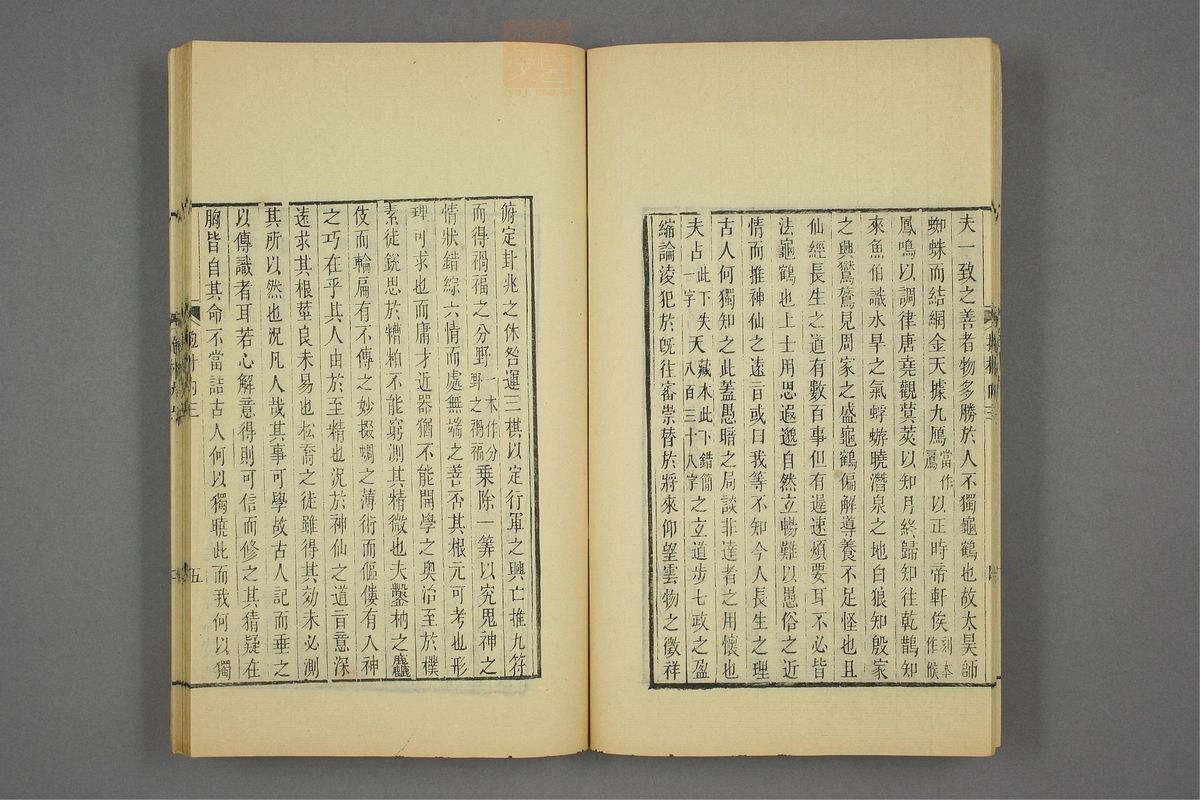 夫一致之善者物多勝於人不獨龜鶴也故太昊師
蜘蛛而結網金天據九鳸當作鳸以正時帝軒俟刻本作候
鳳鳴以調律唐堯觀蓂莢以知月終歸知往乾鵲知
來魚伯識水旱之氣蜉蝣曉潛泉之地白狼知殷家
之興鸑鷟見周家之盛龜鶴偏解導養不足怪也且
仙經長生之道有數百事但有遲速煩要耳不必皆
法龜鶴也上士用思遐邈自然立暢難以愚俗之近
情而推神仙之遠音或曰我等不知今人長生之理
古人何獨知之此蓋愚暗之局談非達者之用懷也
夫占此下失一字天藏本此下錯簡八百三十八字之立道步七政之盈
縮論淩犯於旣往審崇替於將來仰望雲物之徵祥
俯定卦兆之休咎運三棋以定行軍之興亡推九符
而得禍福之分野一本作分野之禍福乘除一筭以究鬼神之
情狀錯綜六情而處無端之善否其根元可考也形
理可求也而庸才近器猶不能開學之奥治至於樸
素徒銳思於糟粕不能窮測其精微也夫鑿枘之麤
伎而輪扁有不傳之妙掇蜩之薄術而傴僂有入神
之巧在乎其人由於至精也況於神仙之道音意深
遠求其根莖良未易也松喬之徒雖得其効未必測
其所以然也況凡人哉其事可學故古人記而垂之
以傳識者耳若心解意得則可信而修之其猜疑在
胸皆自其命不當詰古人何以獨曉此而我何以獨
五